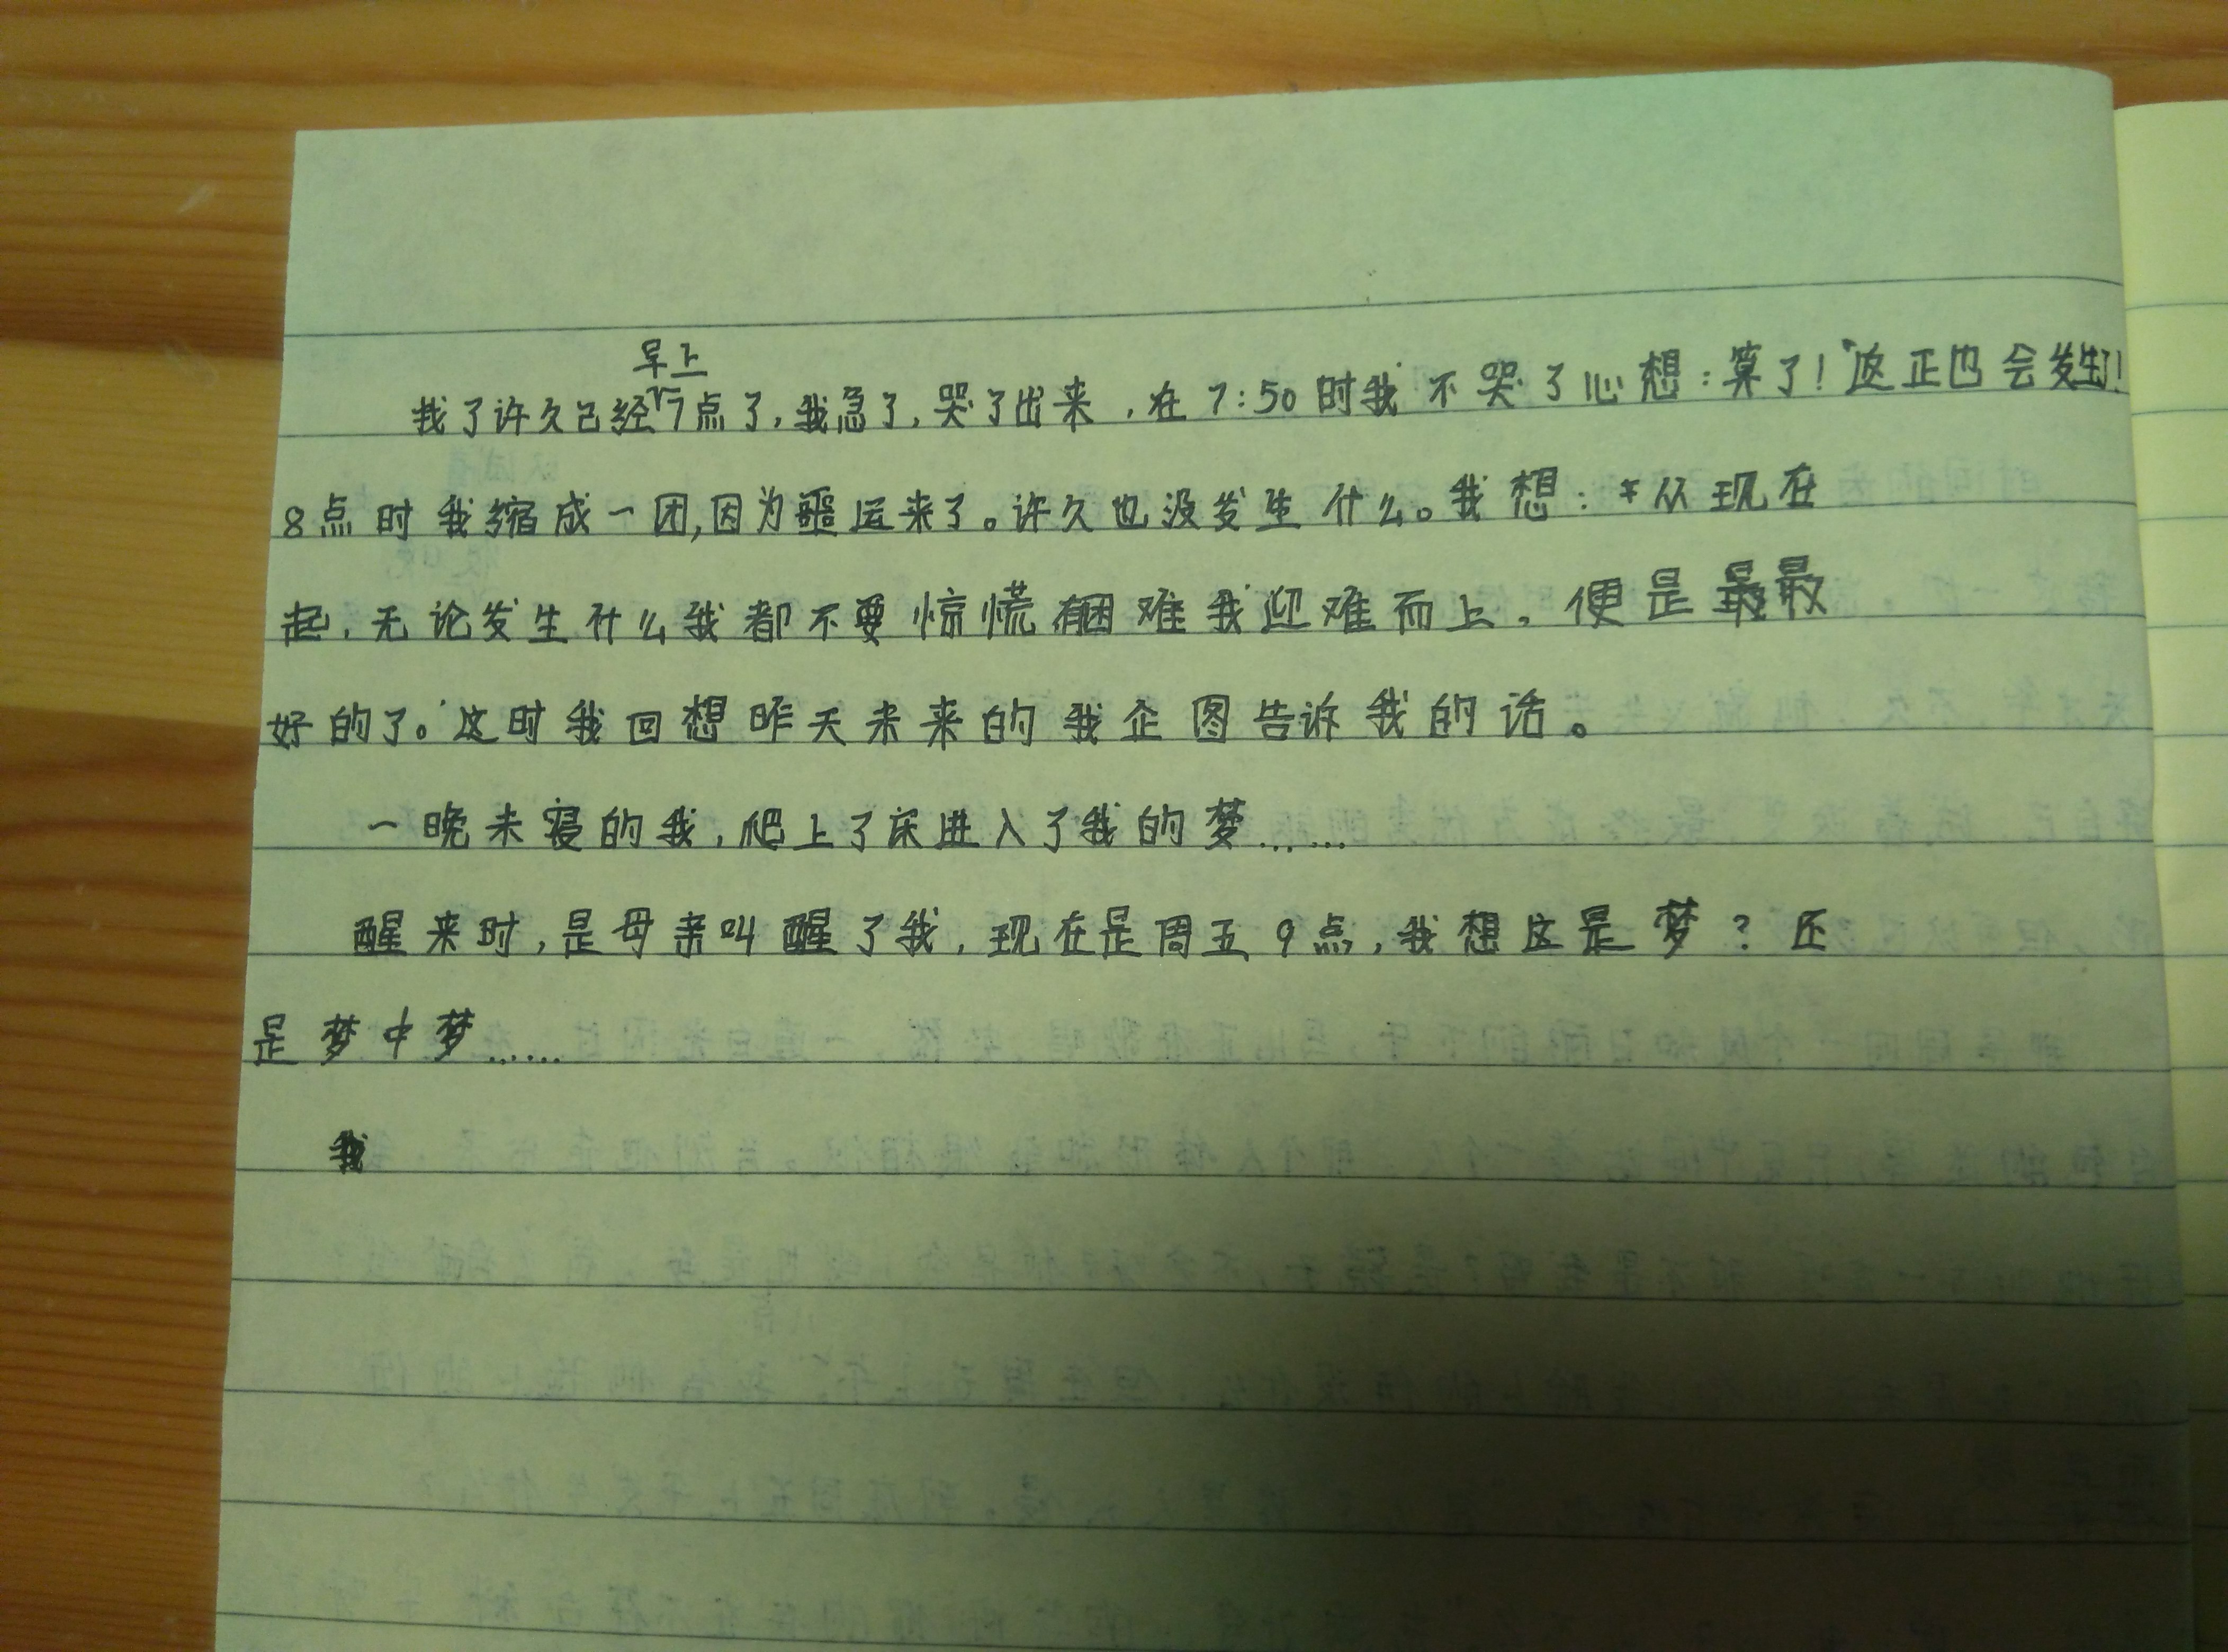 早上
找了许久已经7点了,我急了,哭了出来,在7:50时我不哭了心想:算了!反正也会发生了!
8点时我缩成一团,因为噩运来了。许久也没发生什么。我想:“从现在
起,无论发生什么我都不要惊慌有困难我迎难而上,便是最最
好的了。”这时我回想昨天未来的我企图告诉我的话。
一晚未寝的我,爬上了床进入了我的梦……
醒来时,是母亲叫醒了我,现在是周五9点,我想这是梦?还
是梦中梦……
我